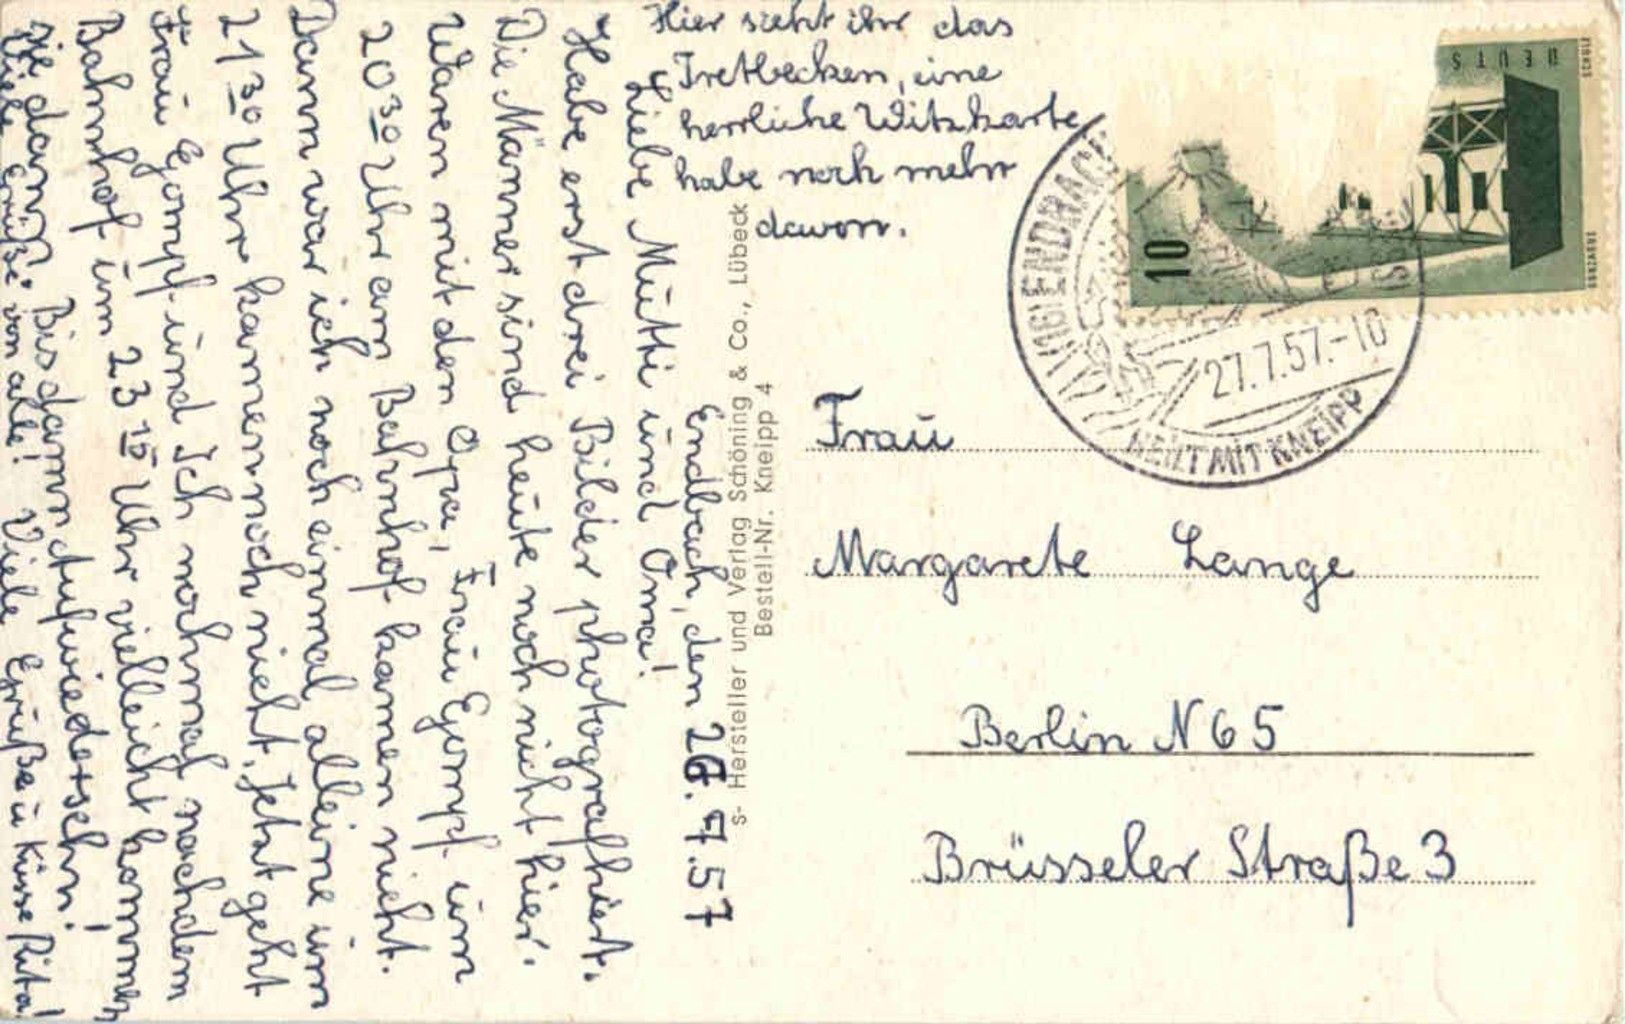 Hier sieht ihr das
Tretbecken, eine
herrliche Witzkarte,
habe noch mehr
davon.
Endbach, den 26.7.57
Liebe Mutti und Oma!
Habe erst drei Bilder photografiert.
Die Männer sind heute noch nicht hier.
Waren mit dem Opa, Frau Gompf um
20 30 Uhr am Bahnhof kamen nicht.
Dann war ich noch einmal alleine um
21 30 Uhr kamen noch nicht. Jetzt geht
Frau Gompf und Ich nochmal nach dem
Bahnhof um 23 15 Uhr vielleicht kommen
sie dann? Bis dann Aufwiedersehn!
Viele Grüße von alle! Viele Grüße u Küsse Rita!
s- Hersteller und Verlag Schöning & Co., Lübeck
Bestell-Nr. Kneipp 4
10
27.7.57.-10
HEILT MIT KNEIPP
Frau
Margarete Lange
Berlin N 65
Brüsseler Straße 3